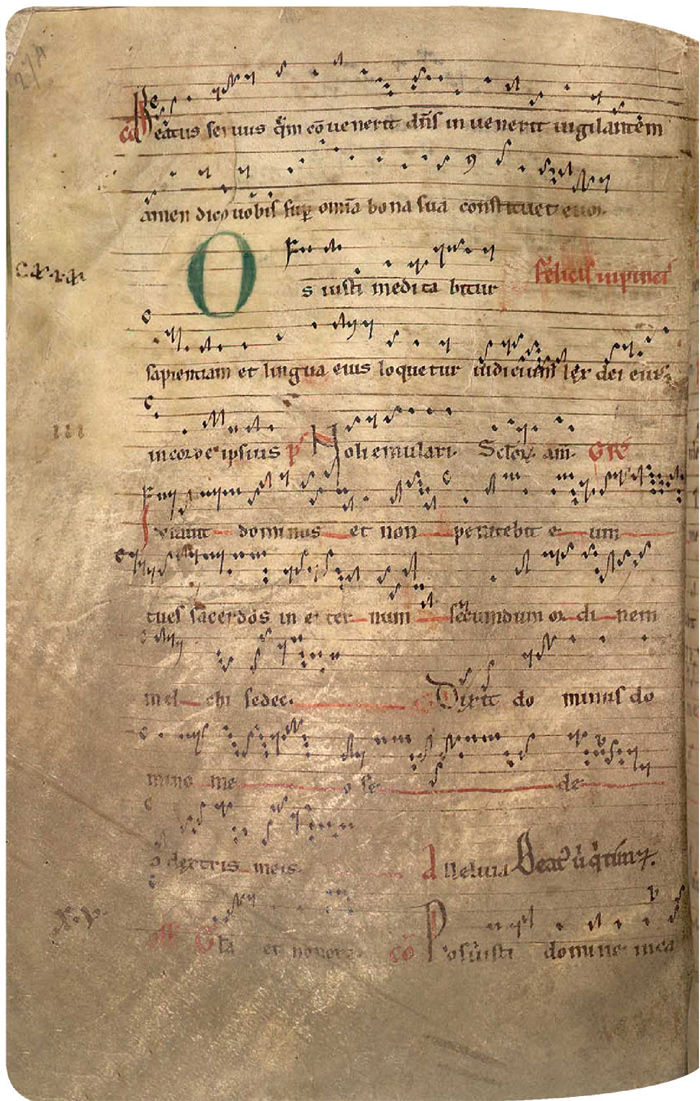 co Beatus servus qm co venerit dns in venerit vigilantem
amen dico vobis sup omia bona sua constituet eum.
Os iusti medita bitur felicis in pincis
sapientiam et lingua eius loquetur iudicium lex dei eius
in corde ipsius ps Noli emulari. Sctor. am. Gre
Iuravit dominus et non penitebit e um
tu es sacerdos in e ter num secundum or di nem
mel chi sedec. Dixit do minus do
mino me o se de
a dextris meis. Alleluia Beat
Gla et honore. co Posuisti domine in ca